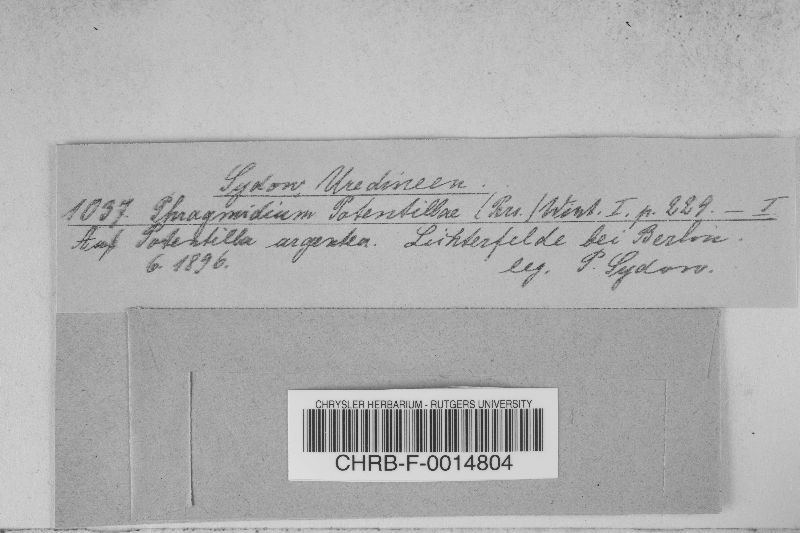 Sydow, Uredineen.
1037. Phragmidium Potentillae (Prs.) Wint. I. p. 229. — I
Auf Potentilla argentea. Lichterfelde bei Berlin.
6. 1896. leg. P. Sydow.
CHRYSLER HERBARIUM - RUTGERS UNIVERSITY
CHRB-F-0014804